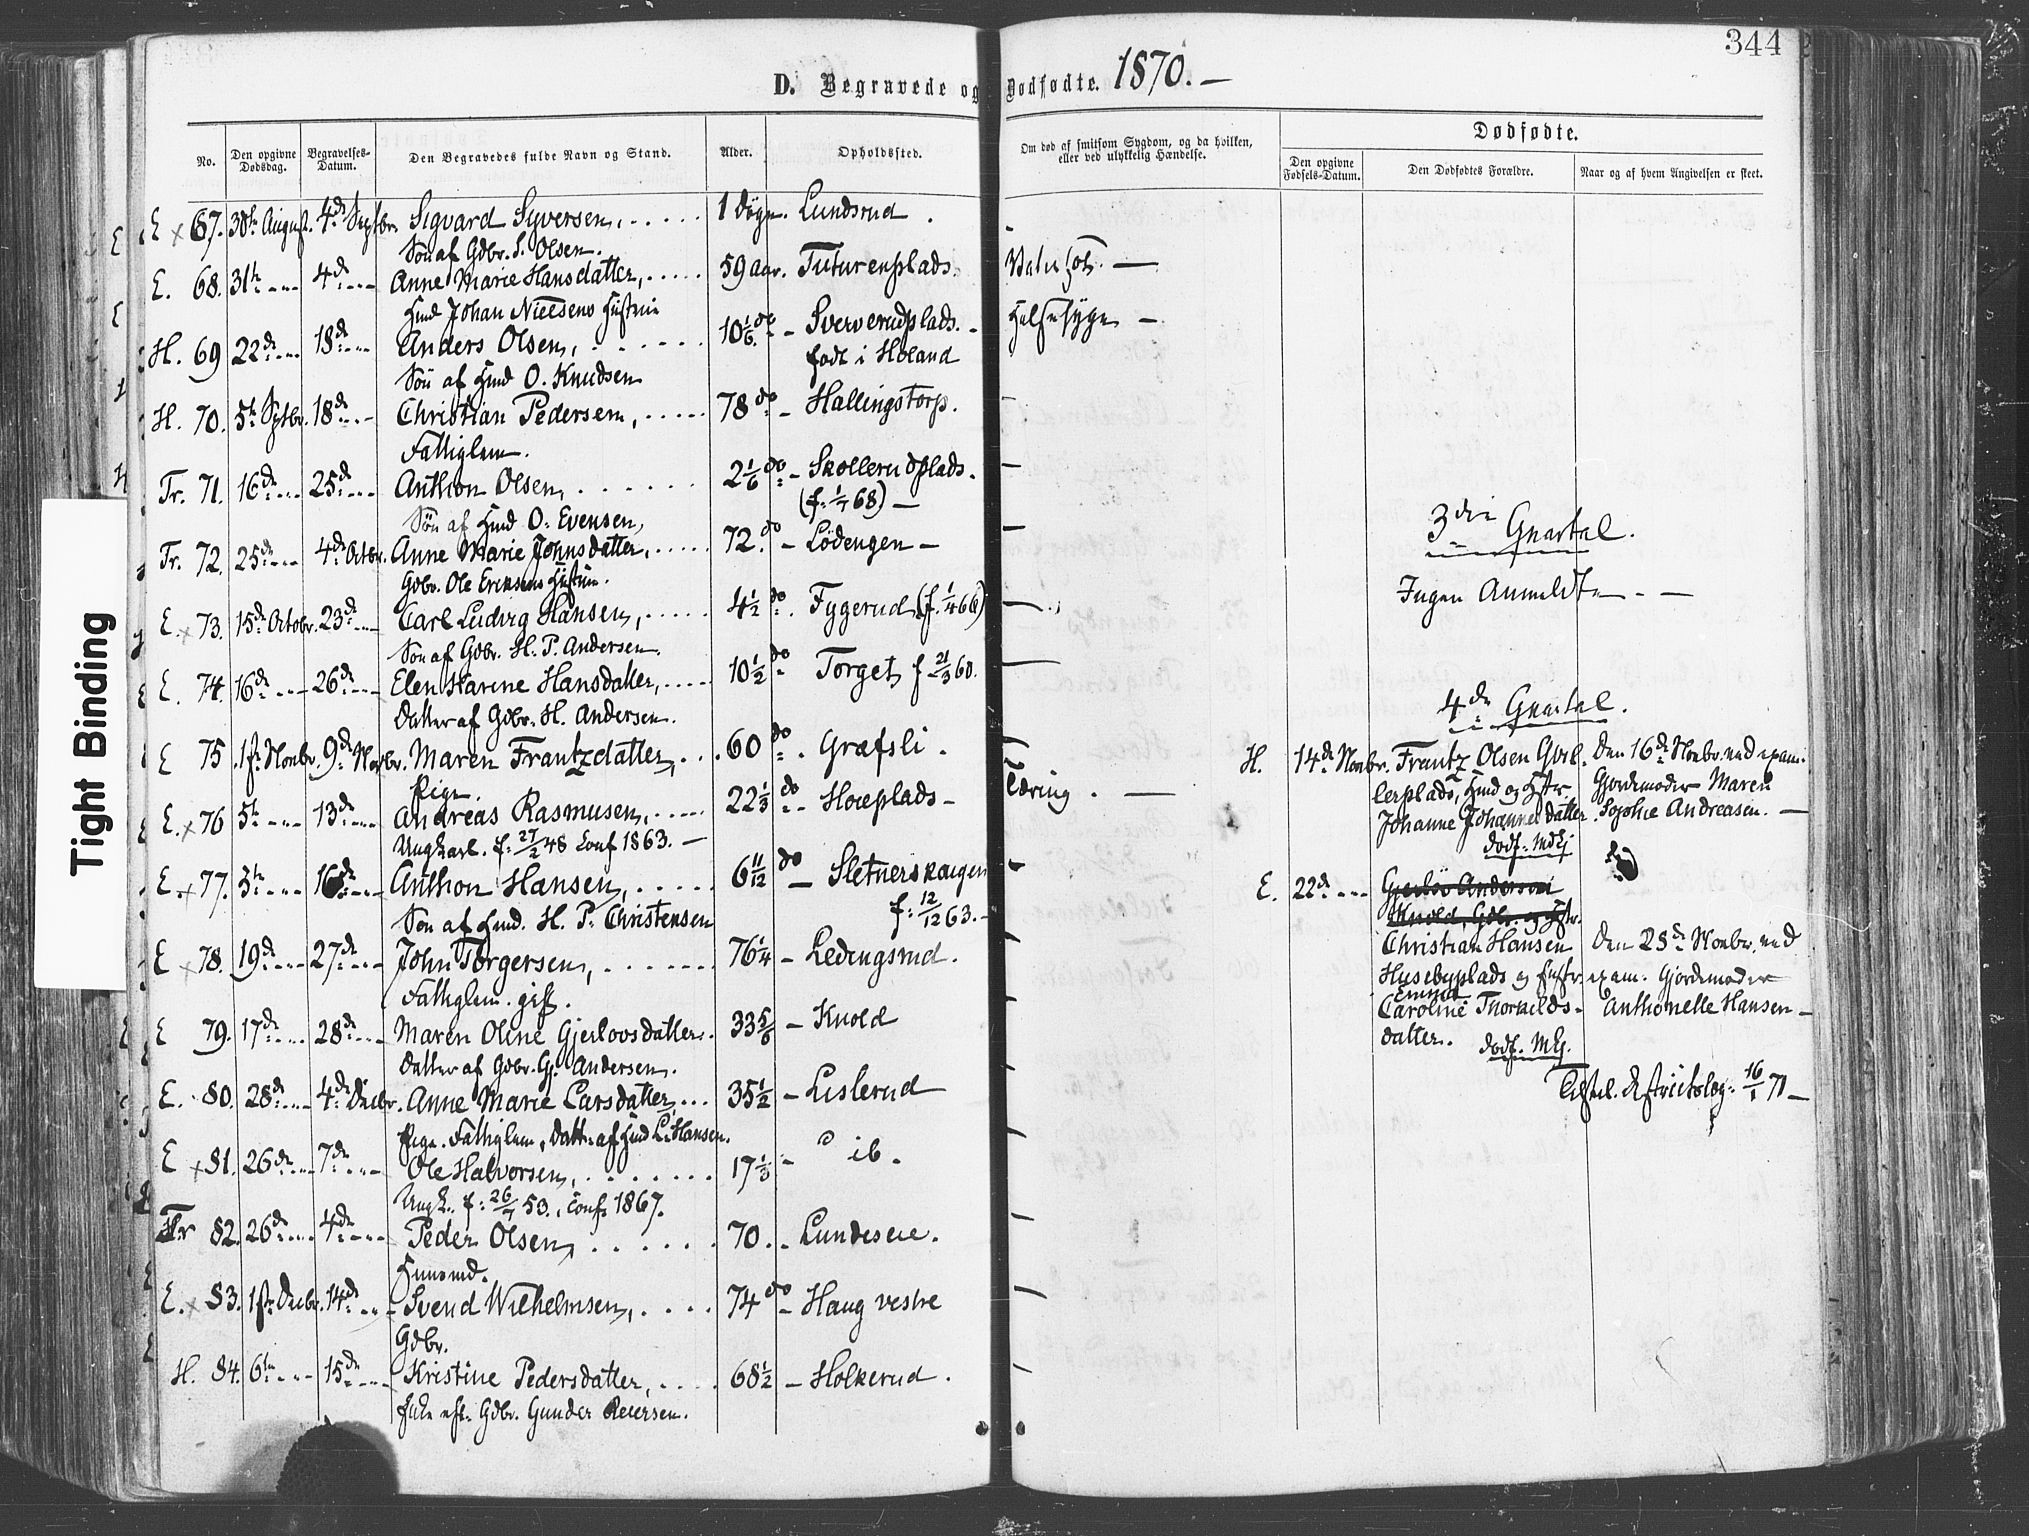 344
D. Begravede og Dødfødte. 1870. —
No.
Den opgivne Dødsdag.
Begravelses-Datum.
Den Begravedes fulde Navn og Stand.
Alder.
Opholdssted.
Om død af smitsom Sygdom, og da hvilken, eller ved ulykkelig Hændelse.
Dødfødte.
Den opgivne Fødsels-Datum.
Den Dødfødtes Forældre.
Naar og af hvem Angivelsen er skeet.
E × 67. 30te August. 4de Septbr. Sigvard Syversen, 1 døgn. Lundsrud.
Søn af Gdbr. S. Olsen.
E. 68. 31te 4de Anne Marie Hansdatter, 59 Aar. Tuturenplads. —
Hmd Johan Nielsens Hustru
H. 69 22de 18de Anders Olsen, 10 1/6 do - Sververudplads. - Halsesyge —
Søn af Hmd O. Knudsen født i Høland
H. 70. 5te Septbr. 18de Christian Pedersen, 78 do - Hallingstorp. —
Fattiglem.
Tr. 71. 16de 25de Anthon Olsen, 2 1/6 do - Skøllerudplads. —
Søn af Hmd O. Evensen, (f. 1/7 68) —
Tr. 72. 25de 4de Octbr. Anne Marie Johnsdatter, 72. do - Lödengen — —
Gdbr. Ole Eriksens Hustru.
E × 73. 15de Octobr. 23de Carl Ludvig Hansen, 4 1/2 do. Fygerud (f. 1/4 66) —
Søn af Gdbr. H. P. Andersen.
E. 74. 16de 26de Elen Karine Hansdatter, 10 1/2 do Torget, f 21/3 60. —
Datter af Gdbr. H. Andersen.
E 75 1ste Novbr. 9de Novbr. Maren Frantzdatter, 60 do. Grafsli. —
Pige.
E. × 76 5te 13de Andreas Rasmusen, 22 1/3 do - Hoieplads - Tæring. —
Ungkarl. f: 27/2 48 Conf 1863. —
E. × 77. 3te 16de Anthon Hansen, 6 11/12 do — Sletnerskaugen
Søn af Hmd. H. P. Christensen f: 12/12 63. -
E × 78. 19de 27de John Torgersen, 76 1/4 - Ledingsrud. —
Fattiglem. gift.
E 79. 17de 28de Maren Oline Gjerlovsdatter. 33 5/6 - Knold —
Datter af Gdbr. Gj. Andersen.
E. 80. 28de 4de Decbr. Anne Marie Larsdatter, 35 1/2 - Lislerud —
Pige. Fattiglem, Datt. af Hmd L. Hansen.
E × 81. 26de 7de Ole Halvorsen, 17 1/3 - ib. —
Ungk. f: 26/7 53., Conf. 1867.
Tr 82. 26de 4de Peder Olsen, 70. - Lundeseie. —
Huusmd.
E. × 83. 1ste Decbr. 14de Svend Wilhelmsen, 74 do - Haug vestre —
Gdbr.
H. 84. 6te 15de Kristine Pedersdatter, 68 1/2 - Holkerud. —
Enke eft. Gdbr. Gunder Reiersen.
3die Qvartal.
Ingen Anmeldte. —
4de Qvartal.
H. 14de Novbr. Frantz Olsen Den 16de Novbr. ved exam.
lerplads, Hmd og Hstr. Gjordemoder Maren
Johanne Johannesdatter. Sophie Andreasen. —
dødf. M
E. 22de Gjerløv Andersen
Knold, Gdbr. og Hstr.
Christian Hansen Den 23de Novbr. ved
Husebyplads og Hustr exam. Gjordemoder
Emma
Caroline Thorkilds- Anthonelle Hansen —
datter. dødf. M
16/1 71 —
Tight Binding